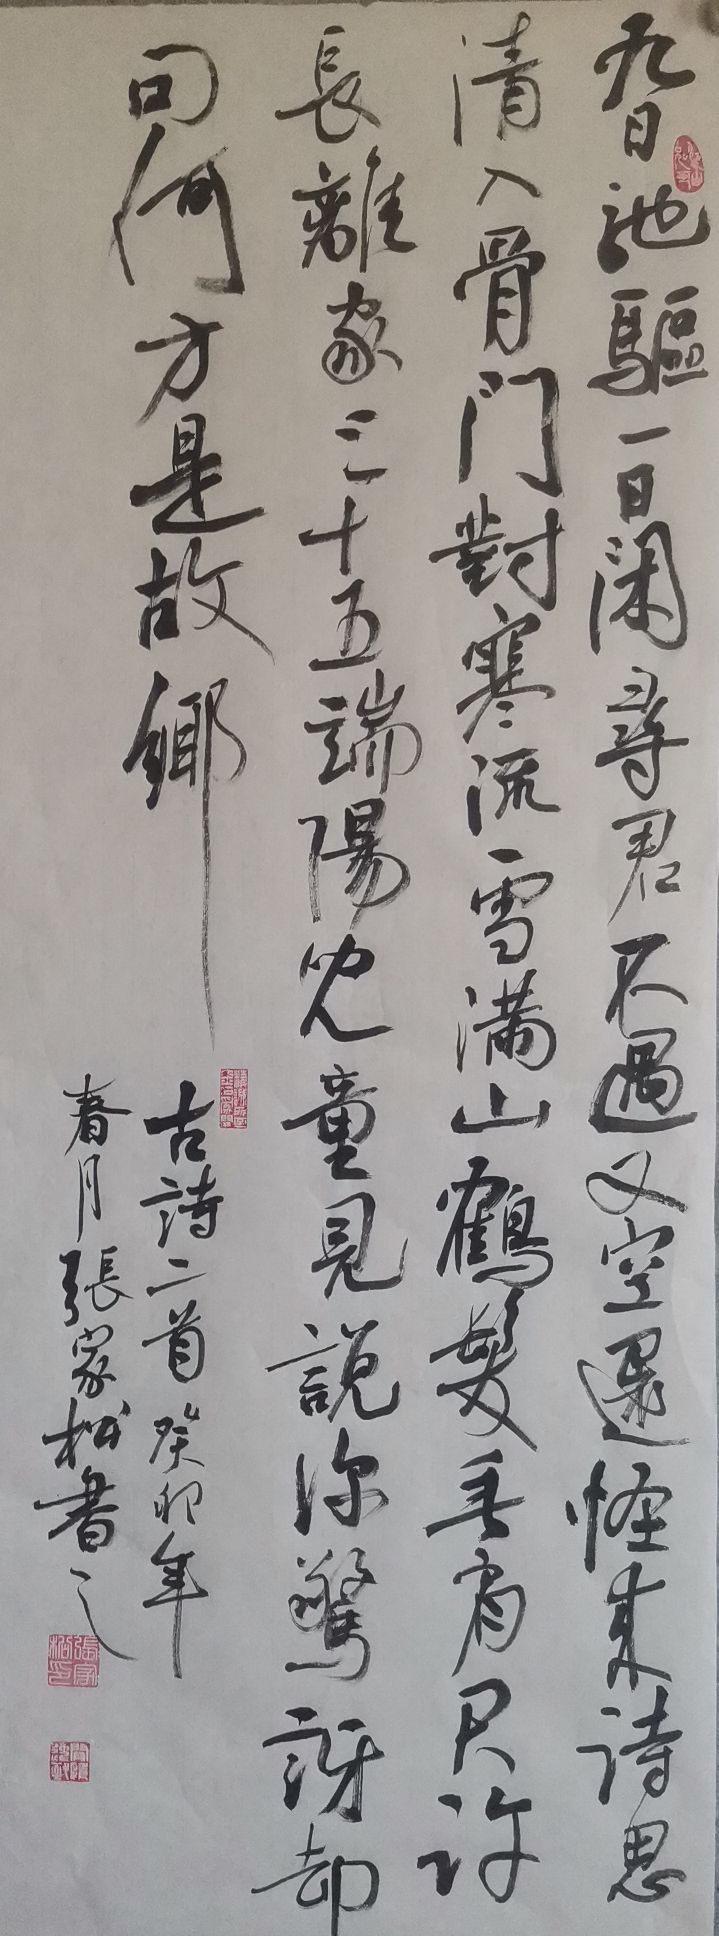 九日馳驅一日閑尋君不遇又空還怪來詩思
清入骨門對寒流雪滿山鶴髮垂肩尺許
長離家三十五端陽兒童見說深驚訝却
问何方是故鄉
古詩二首癸卯年
春月張家松書之